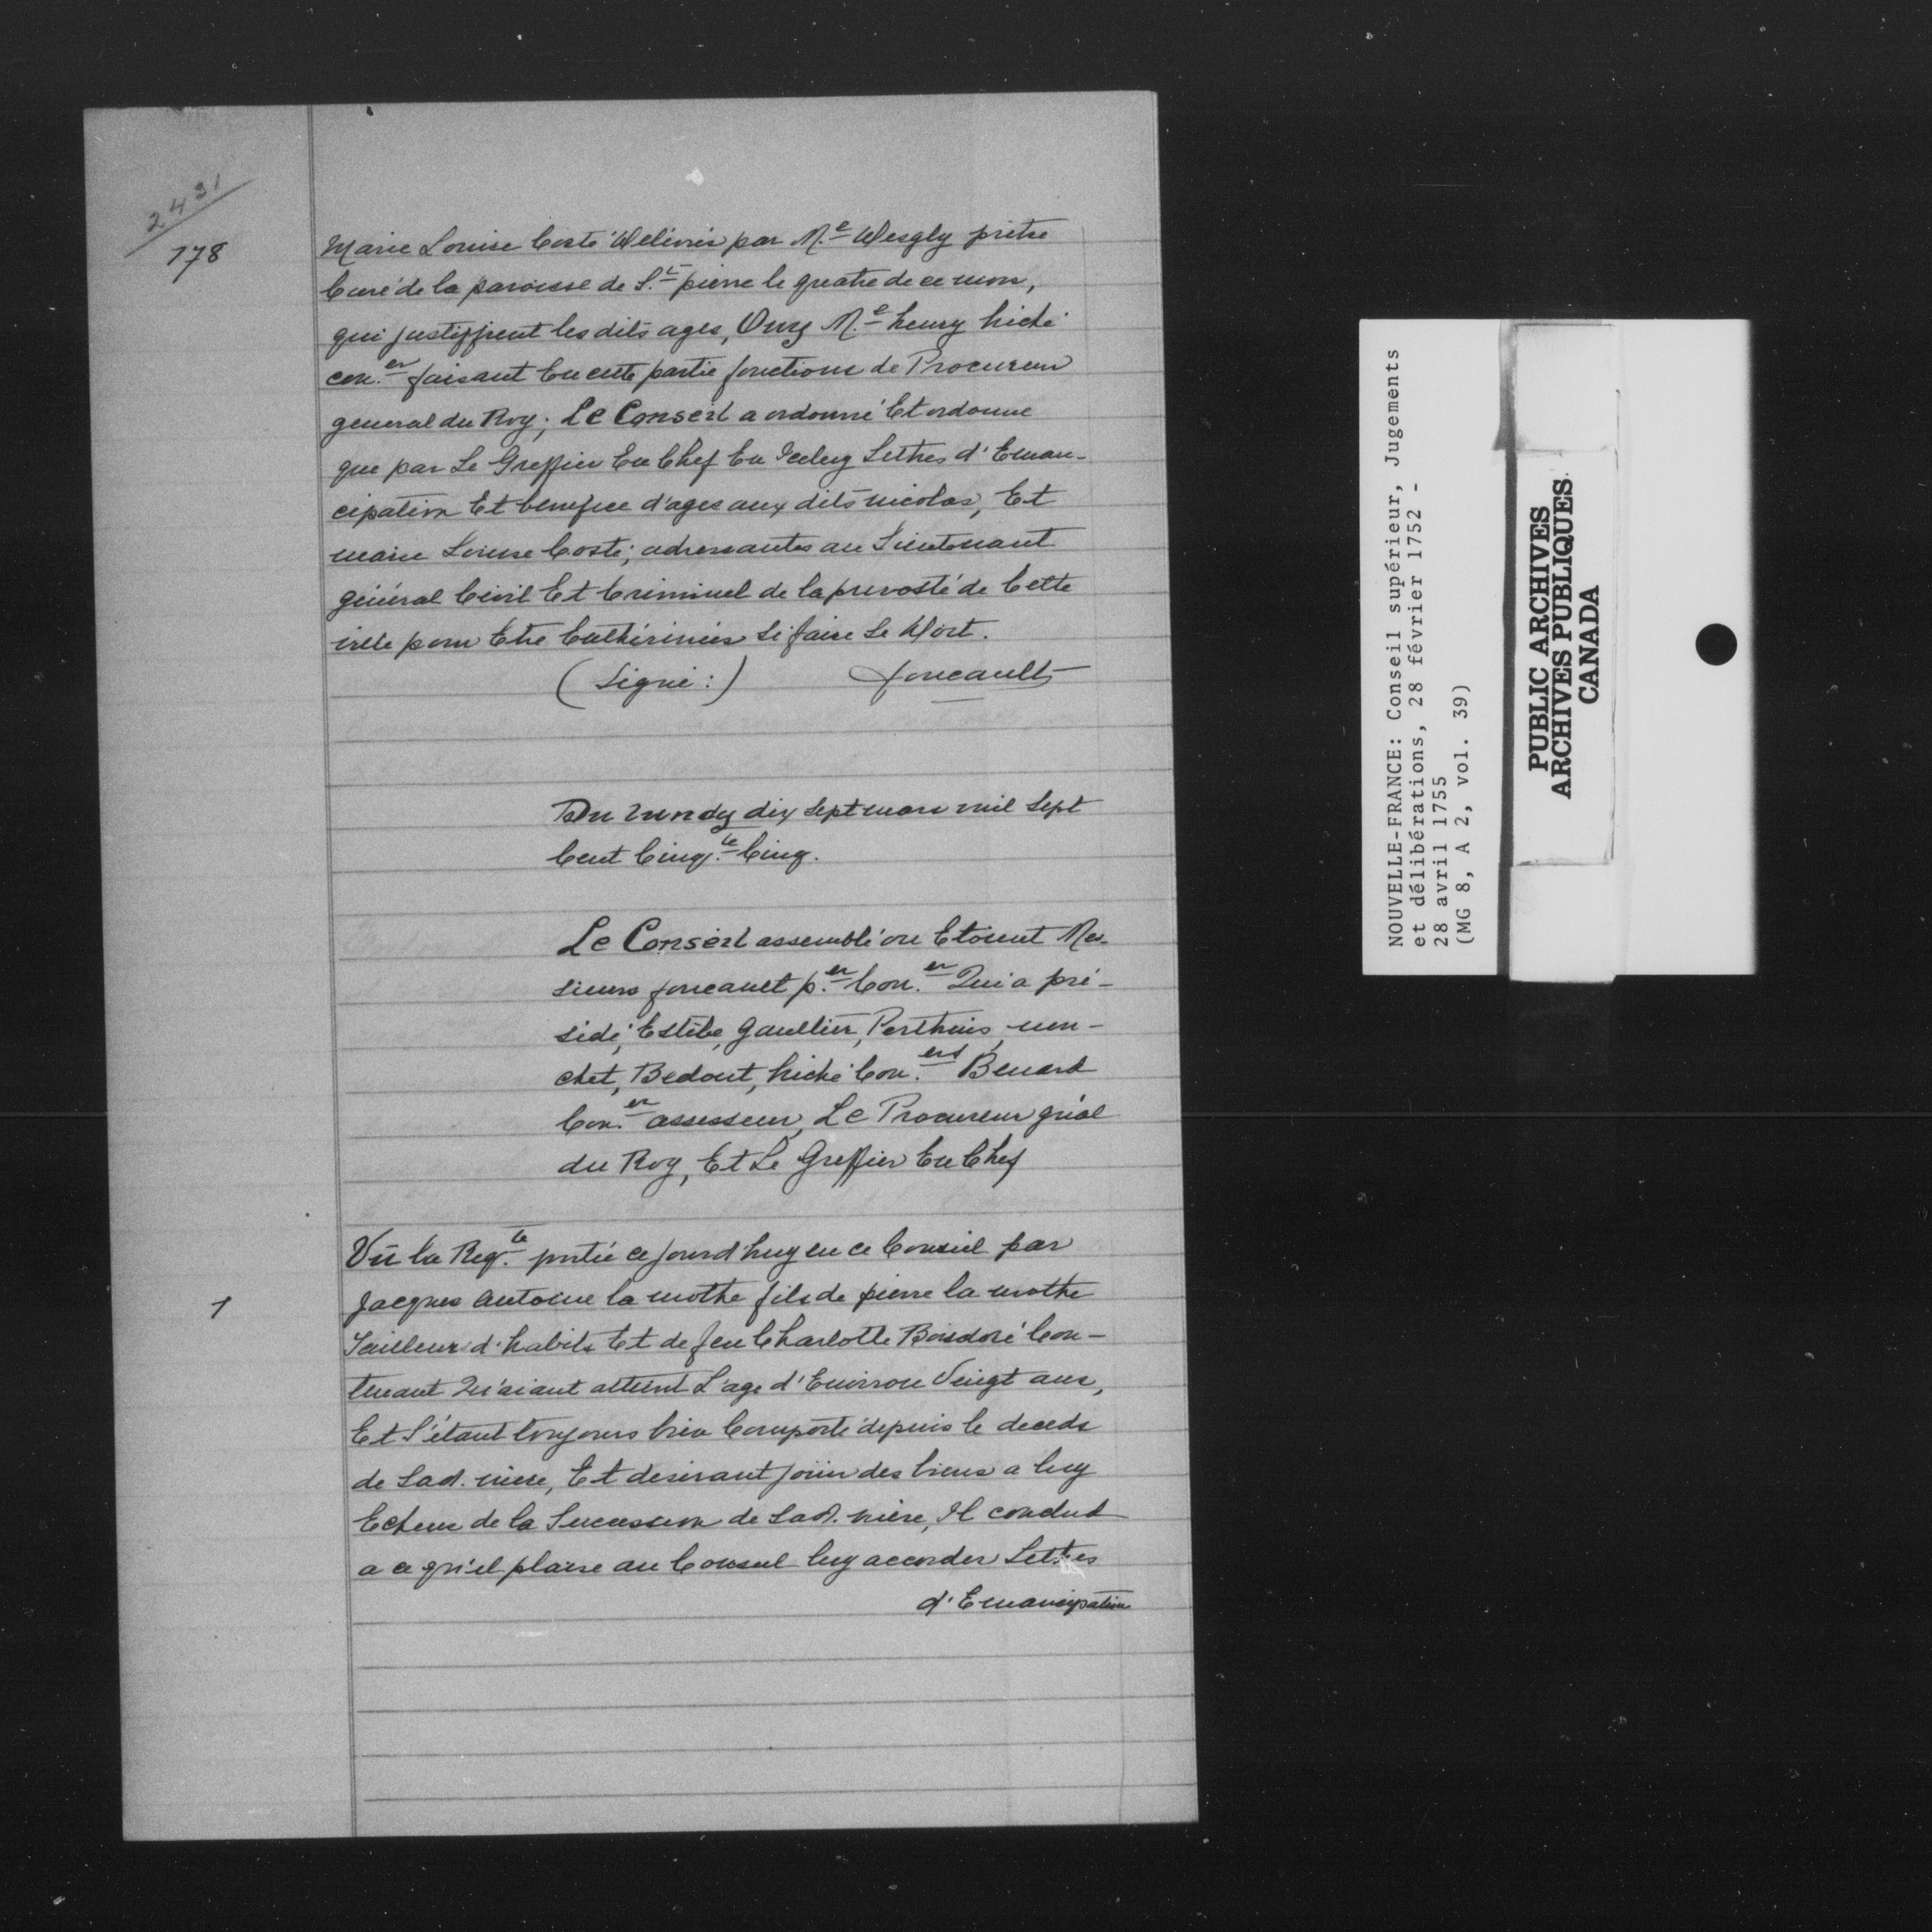 2431
178
Marie Louise Costé Délivrés par M.e Desgly prêtre
Curé de la paroisse de S.t pierre le quatre de ce mois,
qui justiffient les dits ages, Ouy M.e henry hiché
con.er faisant En cette partie fonctions de Procureur
general du Roy; Le Conseil a ordonné Et ordonne
que par Le Greffier En Chef En Iceluy Lettres d'Eman-
cipation Et benefice d'ages aux dits nicolas, Et
marie Louise Costé; adressantes au Lieutenant
général Civil Et Criminel de la prevosté de Cette
ville pour Etre Enthérinées Si faire Se doit.
(Signé:) foucault
Du Lundy dix Sept mars mil Sept
Cent Cinq.te Cinq.
Le Conseil assemblé ou Etoient Mes-
sieurs foucault p.er Con.er Qui a pré-
sidé, Estèbe, Gaultier, Perthuis, nou-
chet, Bedout, hiché Con.ers Bénard
Con.er assesseur, Le Procureur gñal
du Roy, Et Le Greffier En Chef
1
Vû la Req.te pntée ce Jourd'huy en ce Conseil par
Jacques antoine la mothe fils de pierre la mothe
Tailleur d'habits Et de feu Charlotte Boisdoré Con-
tenant Qu'aiant atteint L'age d'Environ Vingt ans,
Et S'étant toujours bien Comporté depuis le deceds
de Sad. mère, Et desirant Joüir des biens a luy
Echeus de la Succession de Sad. mère, Il conclud
a ce qu'il plaise au Conseil luy accorder Lettres
d'Emancipation
NOUVELLE-FRANCE: Conseil supérieur, Jugements
et délibérations, 28 février 1752 -
28 avril 1755
(MG 8, A 2, vol. 39)
PUBLIC ARCHIVES
ARCHIVES PUBLIQUES
CANADA